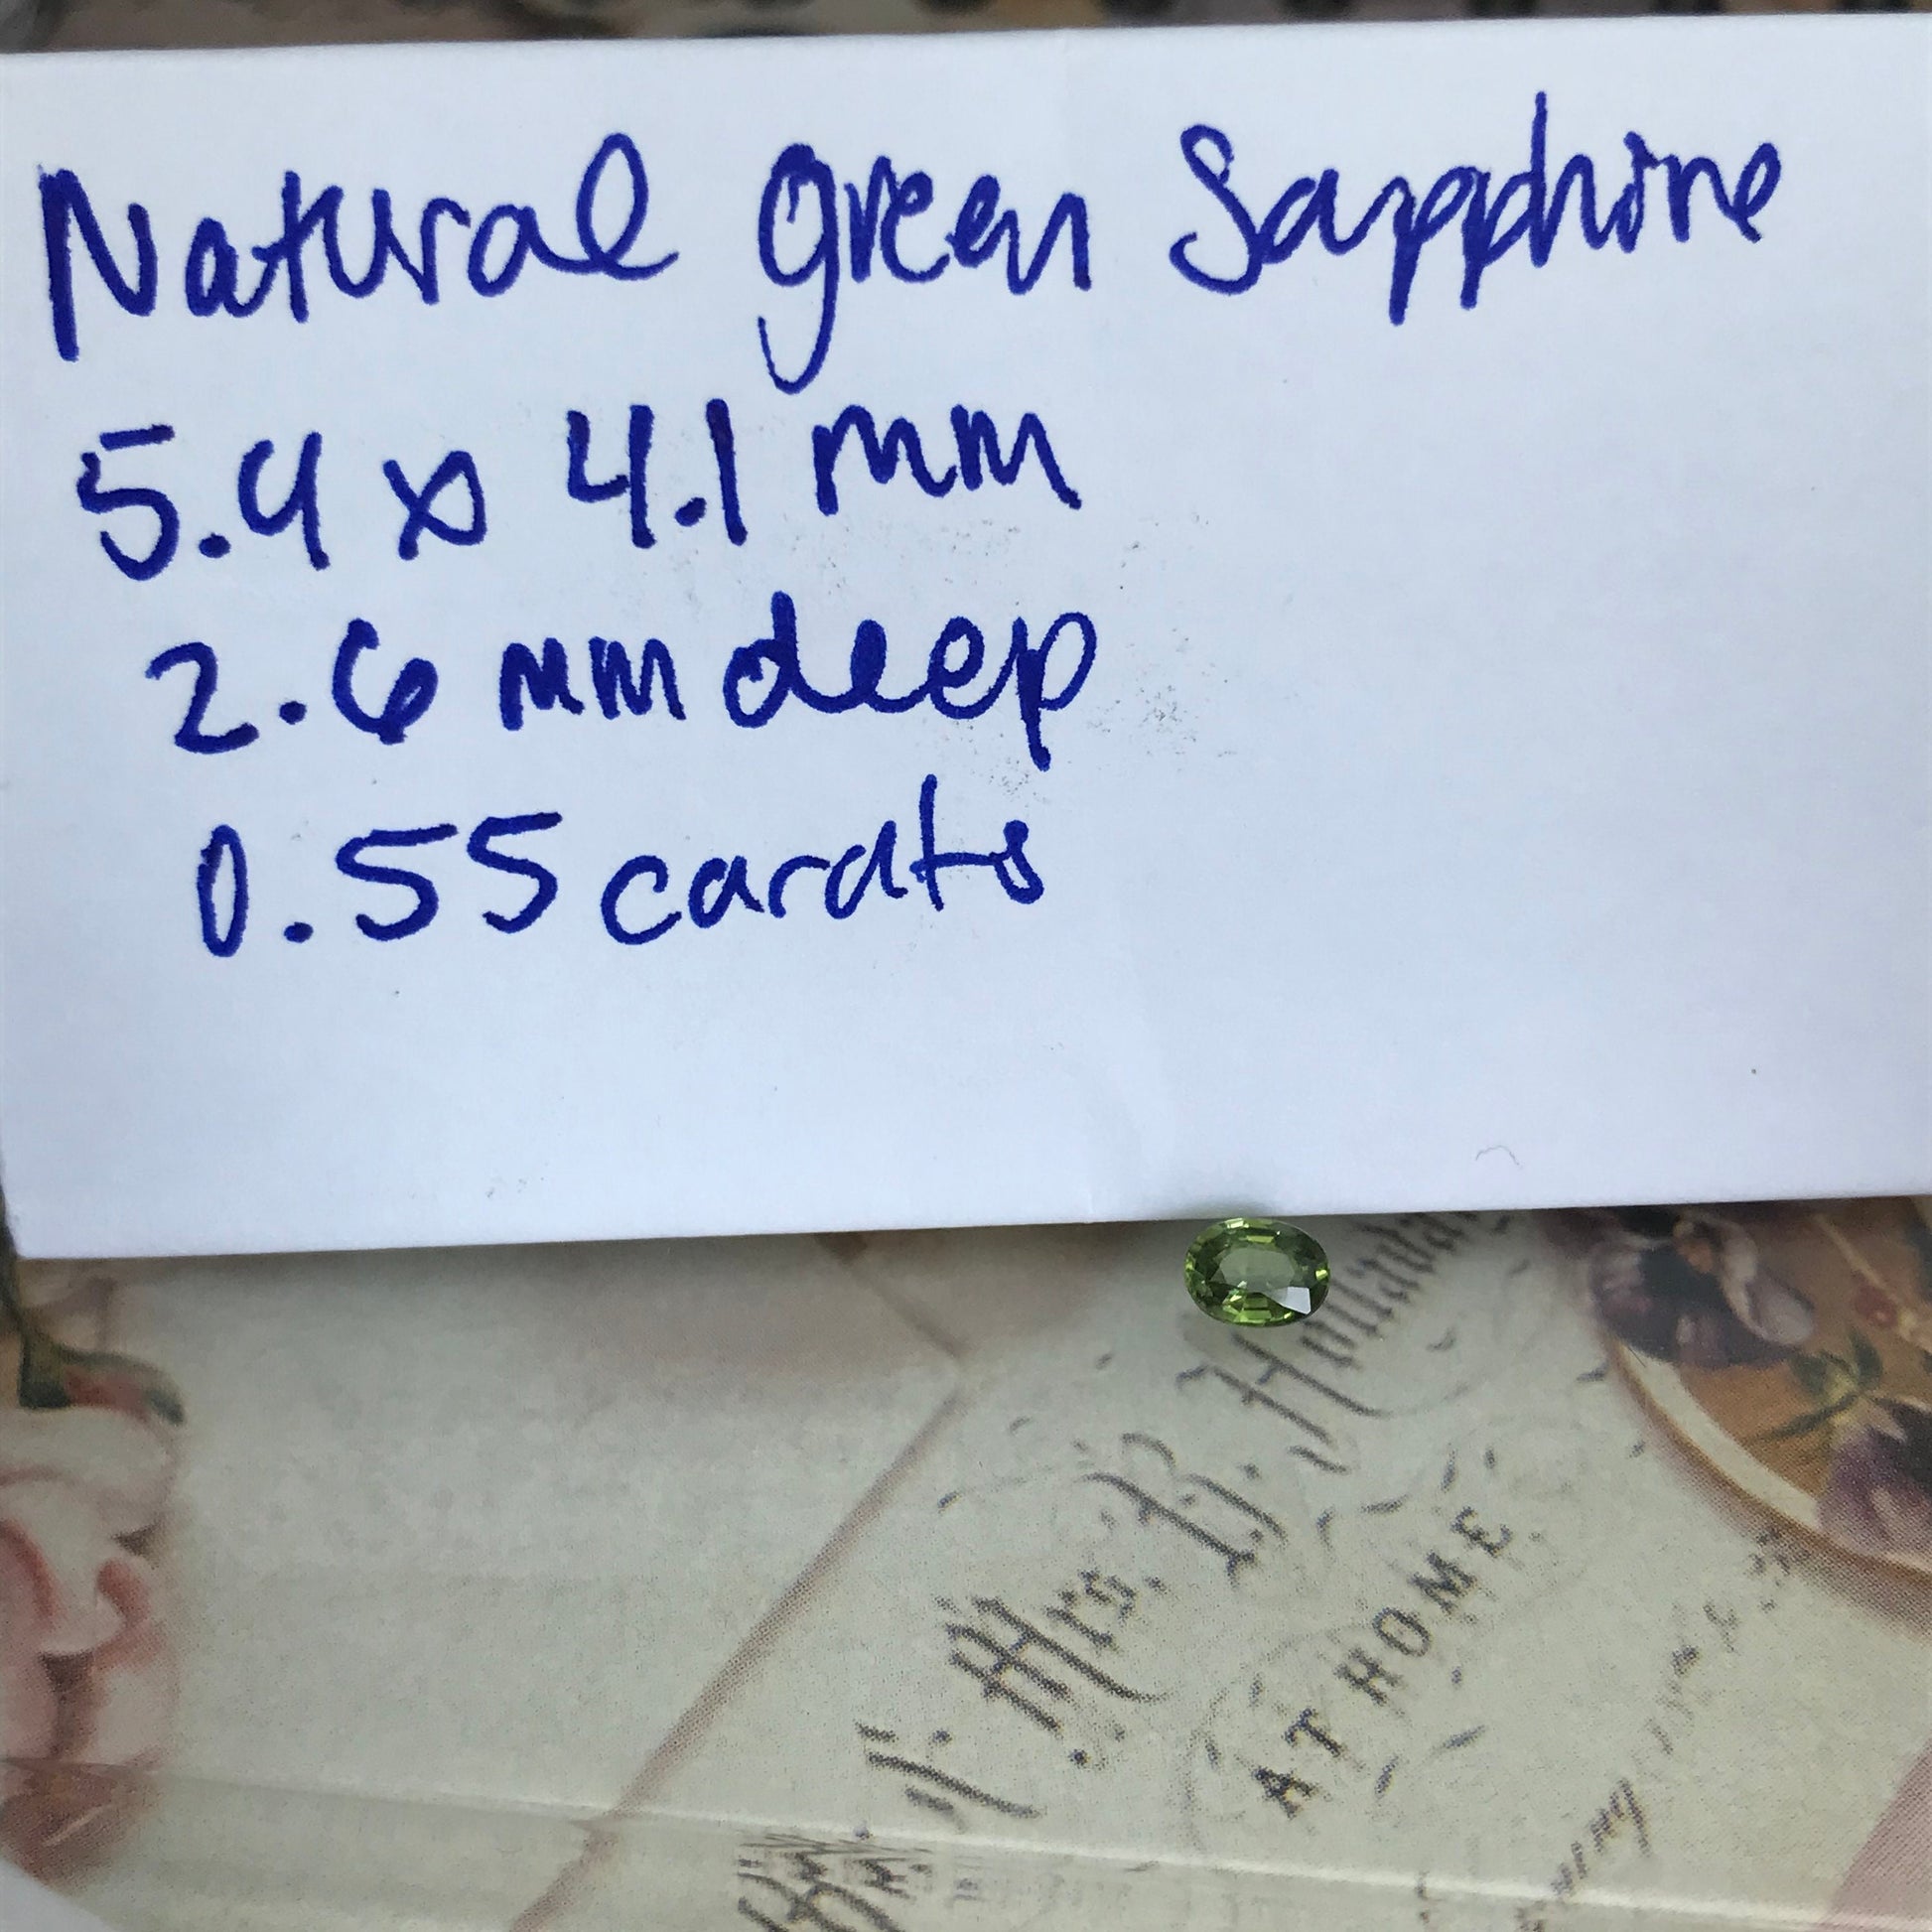 Natural green Sapphire
5.4 x 4.1 mm
2.6 mm deep
0.55 carats
Mrs.
AT HOME